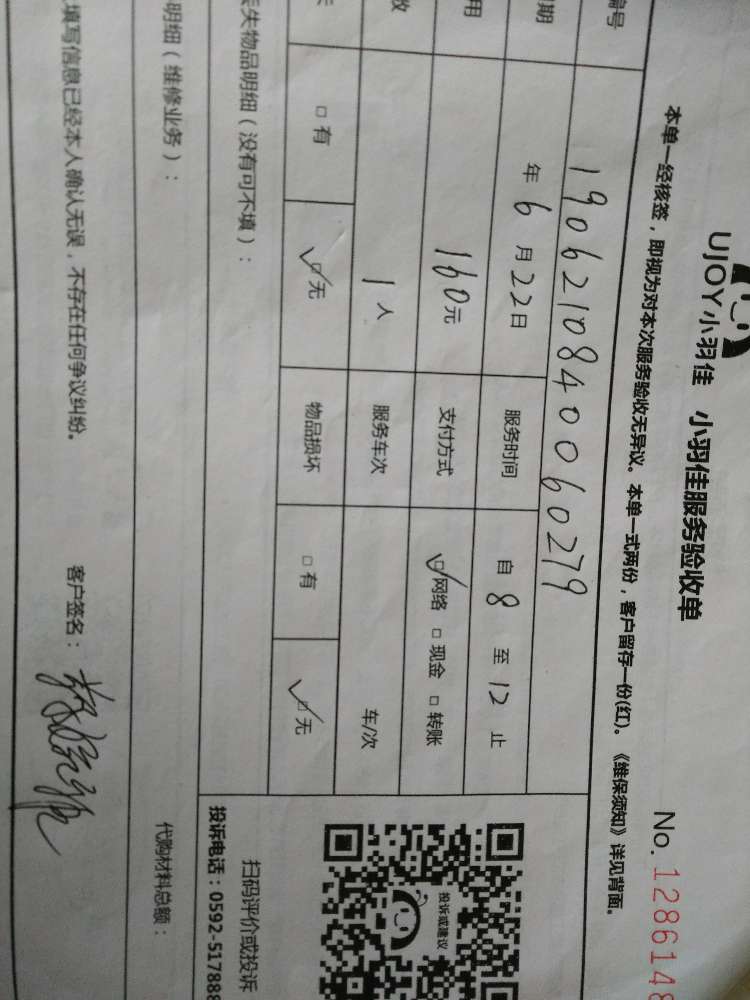 UJOY小羽佳 小羽佳服务验收单
No. 1286148
本单一经核签，即视为对本次服务验收无异议。本单一式两份，客户留存一份(红)。《维保须知》详见背面。
编号 1906210840060279
期 年6月22日 服务时间 自 8 至 12 止
用 160元 支付方式 ☑网络 □现金 □转账
数 1人 服务车次 车/次
失 □有 ☑无 物品损坏 □有 ☑无
丢失物品明细（没有可不填）：
扫码评价或投诉
投诉或建议
投诉电话：0592-517888
明细（维修业务）：
代购材料总额：
填写信息已经本人确认无误，不存在任何争议纠纷。 客户签名：